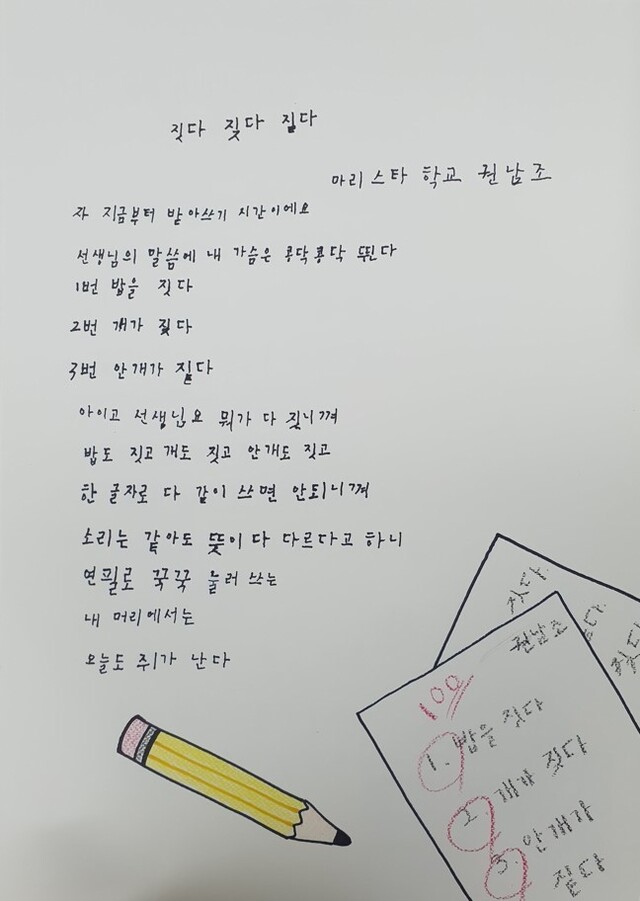 짓다 짖다 짙다
마리스타 학교 권남조
자 지금부터 받아쓰기 시간이에요
선생님의 말씀에 내 가슴은 콩닥콩닥 뛴다
1번 밥을 짓다
2번 개가 짖다
3번 안개가 짙다
아이고 선생님요 뭐가 다 짖니껴
밥도 짓고 개도 짓고 안개도 짓고
한 글자로 다 같이 쓰면 안되니껴
소리는 같아도 뜻이 다 다르다고 하니
연필로 꾹꾹 눌러 쓰는
내 머리에서는
오늘도 쥐가 난다
짓다.
권남조
100
1. 밥을 짓다
2. 개가 짖다
3. 안개가
짙다